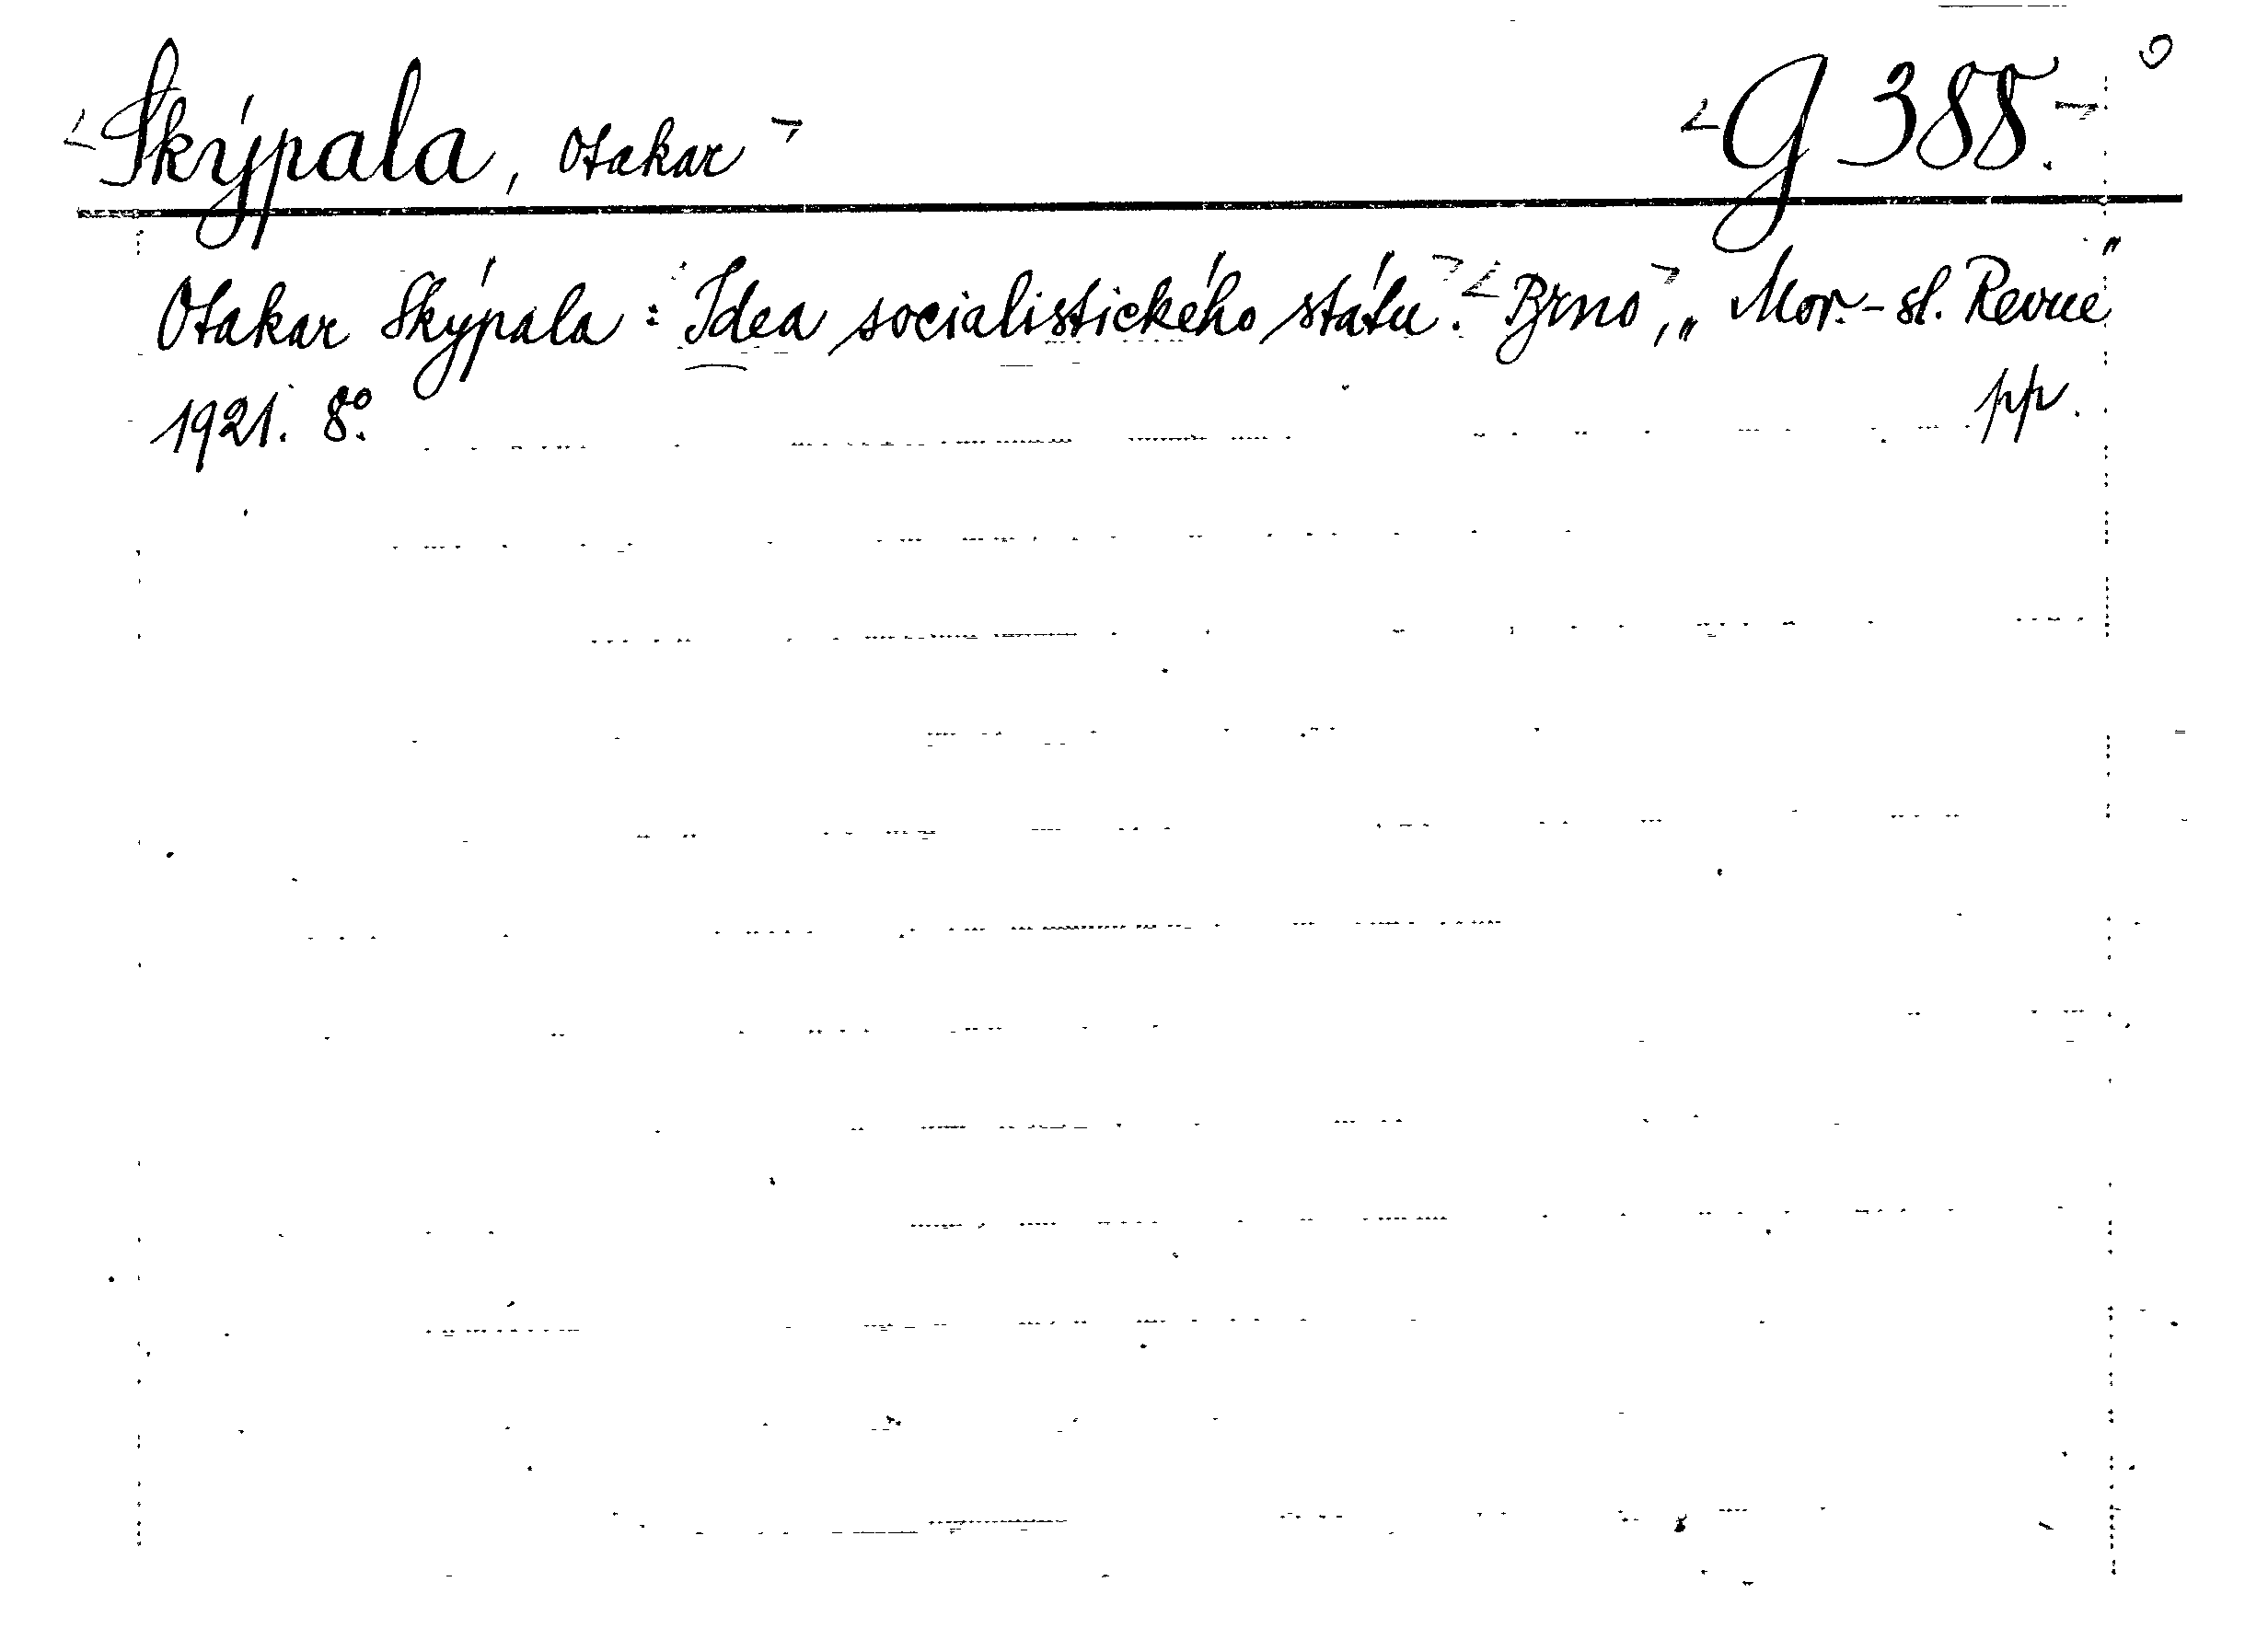 <Skýpala, Otakar> <G 388.>
Otakar Skýpala: Idea socialistického státu.> <Brno>, „Mor.-sl. Revue"
1921. 8°. pp.